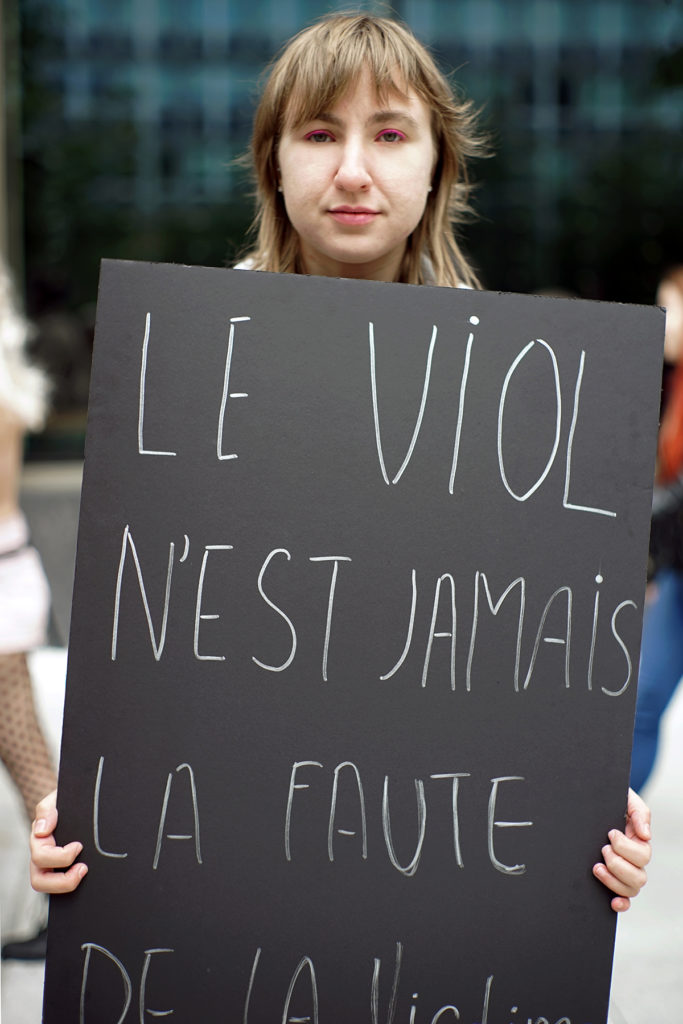 LE ViOL
N'EST JAMAiS
LA FAUTE
DE LA Victime